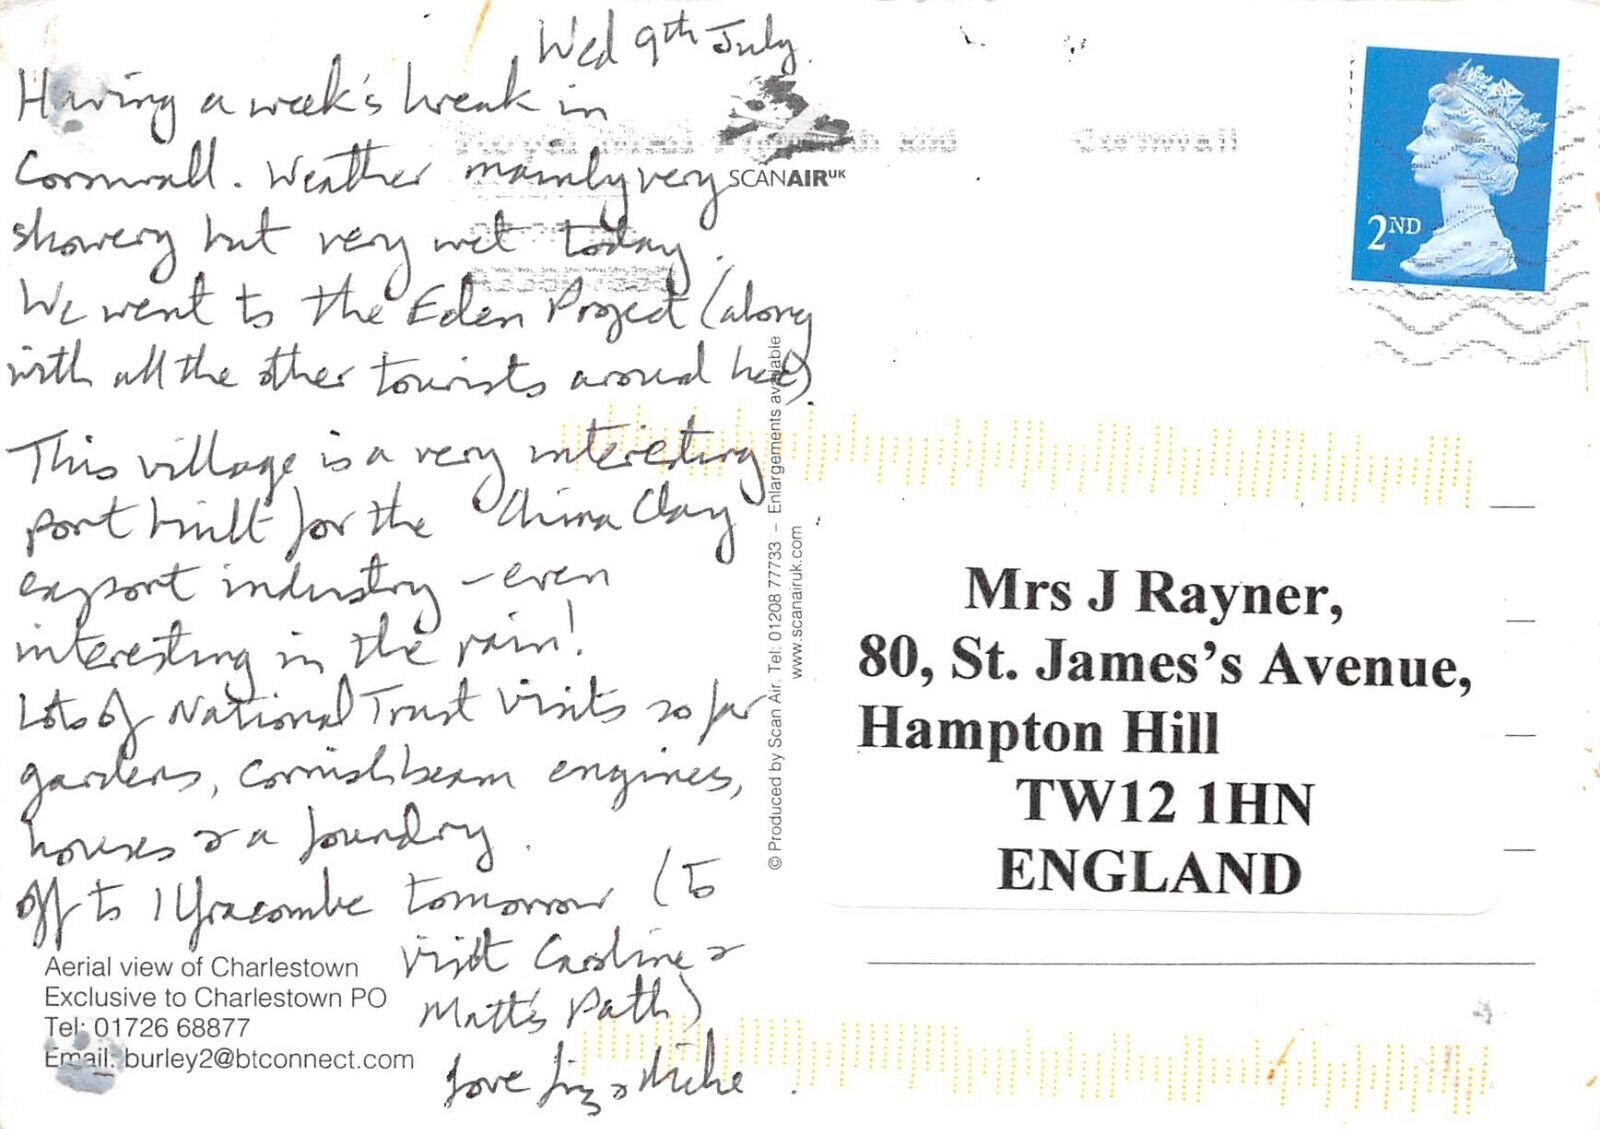 Wed 9th July
Having a week's break in
Cornwall. Weather mainly very
showery but very wet today.
We went to the Eden Project (along
with all the other tourists around here)
This village is a very interesting
port built for the China Clay
export industry – even
interesting in the rain!
Lots of National Trust visits so far
gardens, Cornish beam engines,
houses & a foundry.
Off to Ilfracombe tomorrow (to
visit Caroline &
Matt's Path)
love Liz & Mike
SCANAIRUK
2ND
© Produced by Scan Air. Tel: 01208 77733 – Enlargements available
www.scanairuk.com
Mrs J Rayner,
80, St. James's Avenue,
Hampton Hill
TW12 1HN
ENGLAND
Aerial view of Charlestown
Exclusive to Charlestown PO
Tel: 01726 68877
Email: burley2@btconnect.com